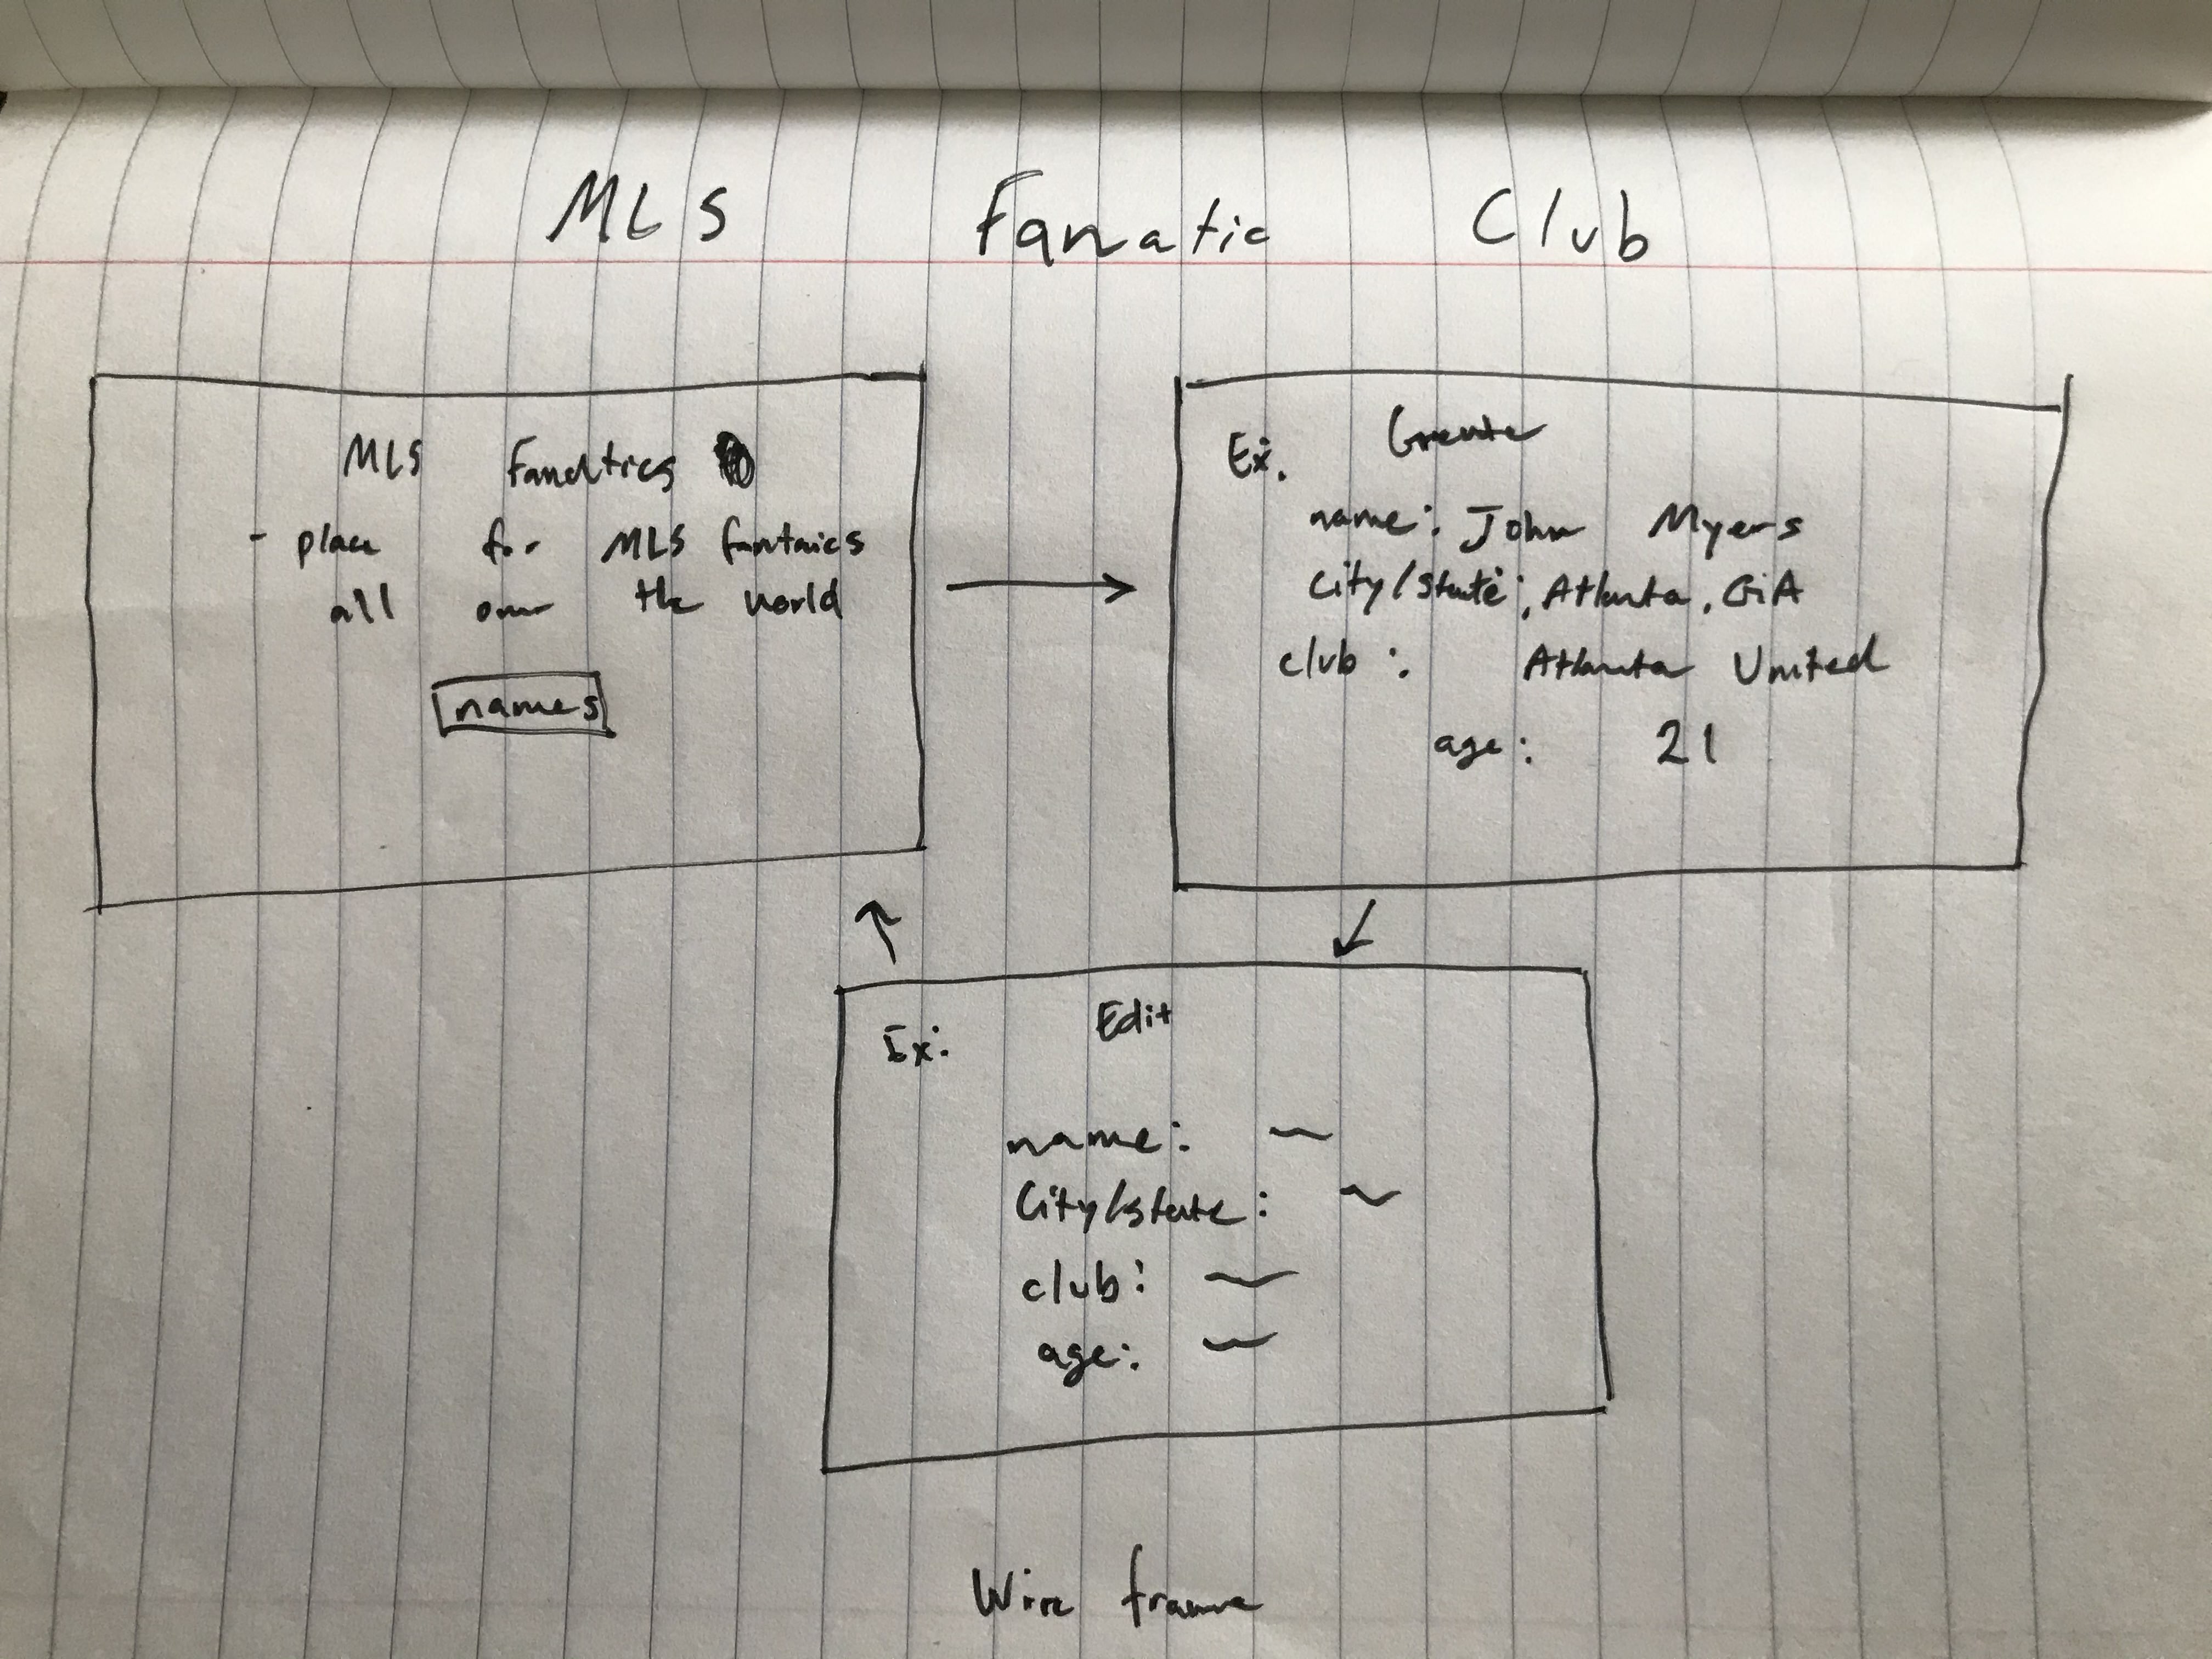 MLS Fanatic Club
MLS fanatics
- place for MLS fantaics
all over the world
names
Create
Ex.
name: John Myers
city/state: Atlanta, GA
club: Atlanta United
age: 21
Edit
Ex:
name: ~
City/state: ~
club: ~
age: ~
Wire frame